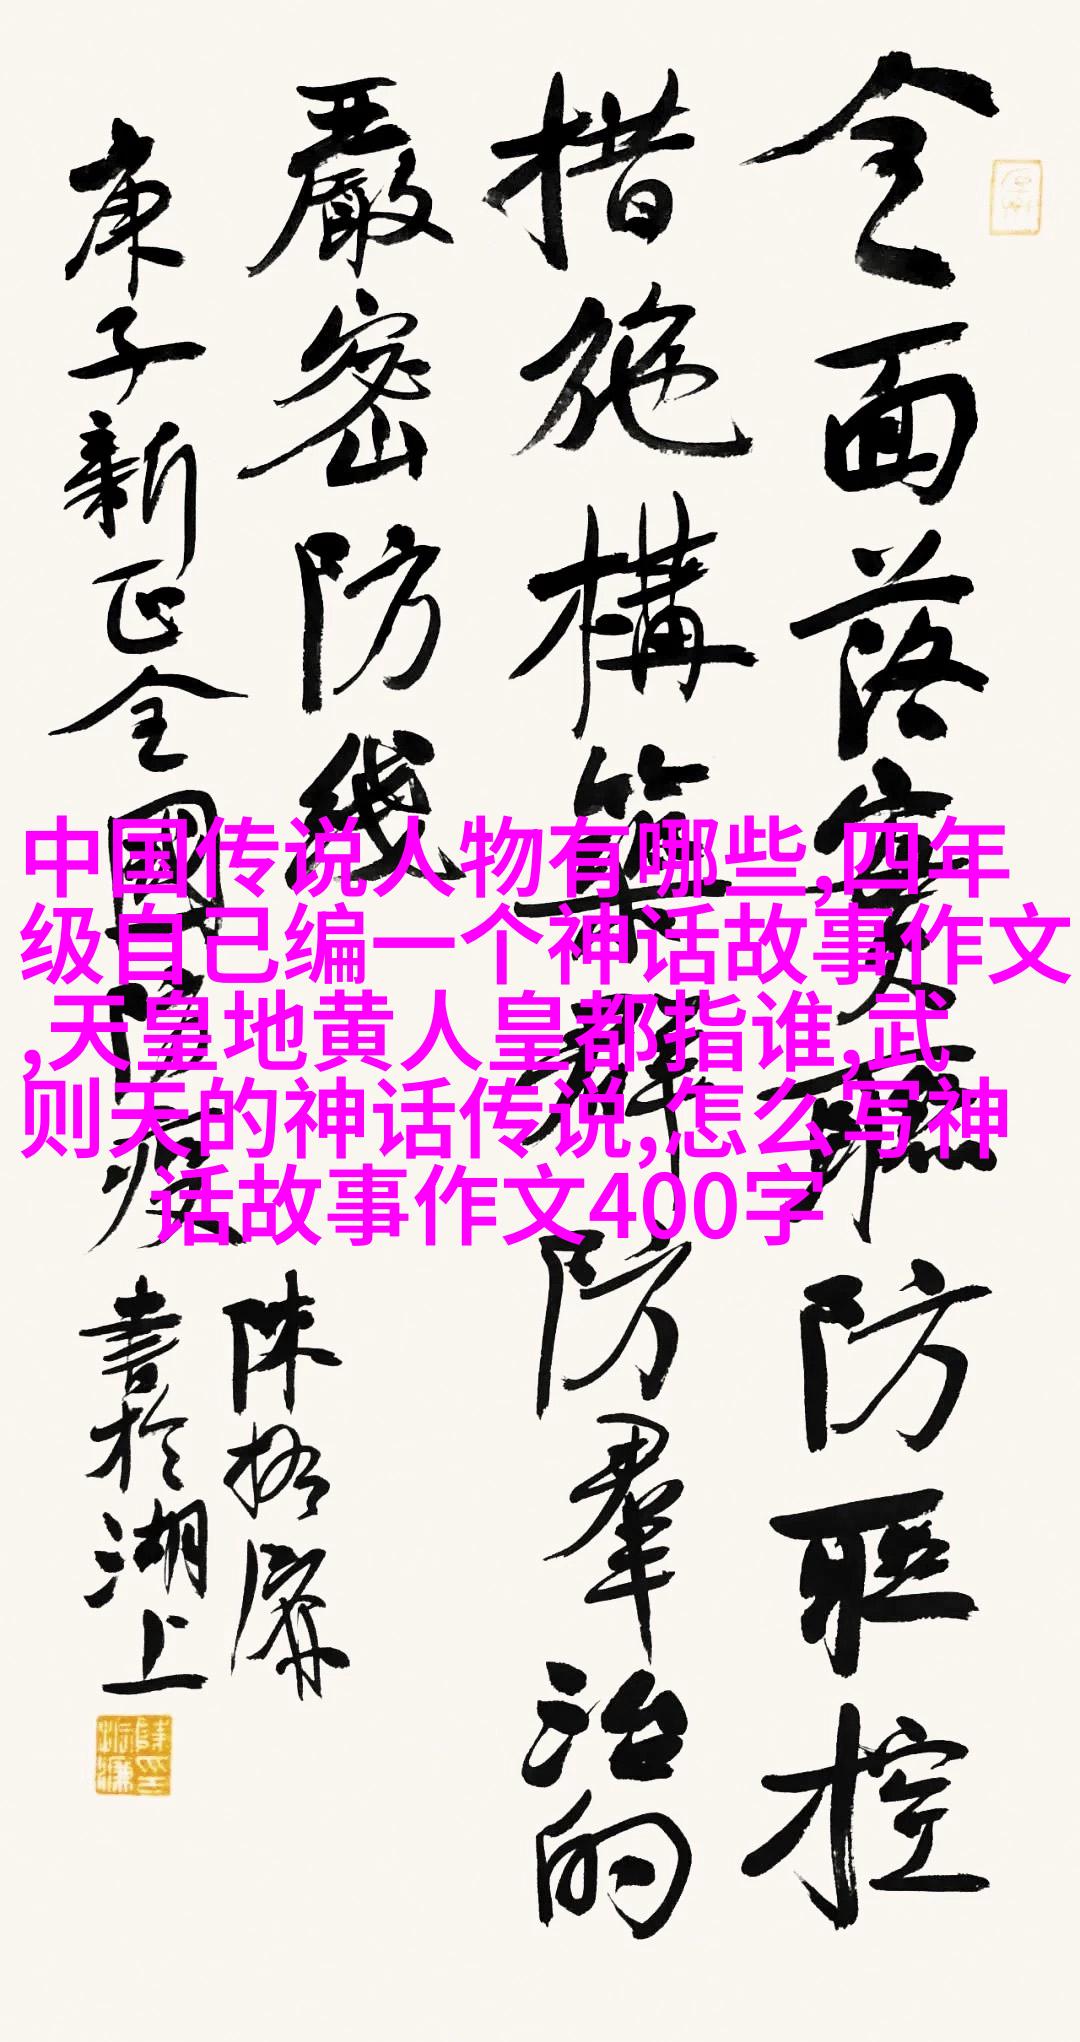 全面落實联防联控
措施構築群防羣治的
嚴密防线
庚子新正全國防疫
陈振濂
書於湖上
中国传说人物有哪些,四年
级自己编一个神话故事作文
,天皇地黄人皇都指谁,武
则天的神话传说,怎么写神
话故事作文400字